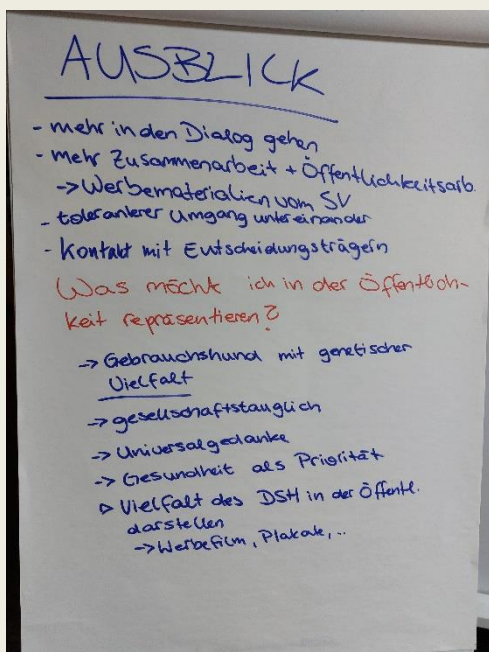 AUSBLICK
- mehr in den Dialog gehen
- mehr Zusammenarbeit + Öffentlichkeitsarb.
-> Werbematerialien vom SV
- toleranterer Umgang untereinander
- Kontakt mit Entscheidungsträgern
Was möchte ich in der Öffentlich-
keit repräsentieren?
-> Gebrauchshund mit genetischer
Vielfalt
-> gesellschaftstauglich
-> Universalgedanke
-> Gesundheit als Priorität
▷ Vielfalt des DSH in der Öffentl.
darstellen
-> Werbefilm, Plakate, ..